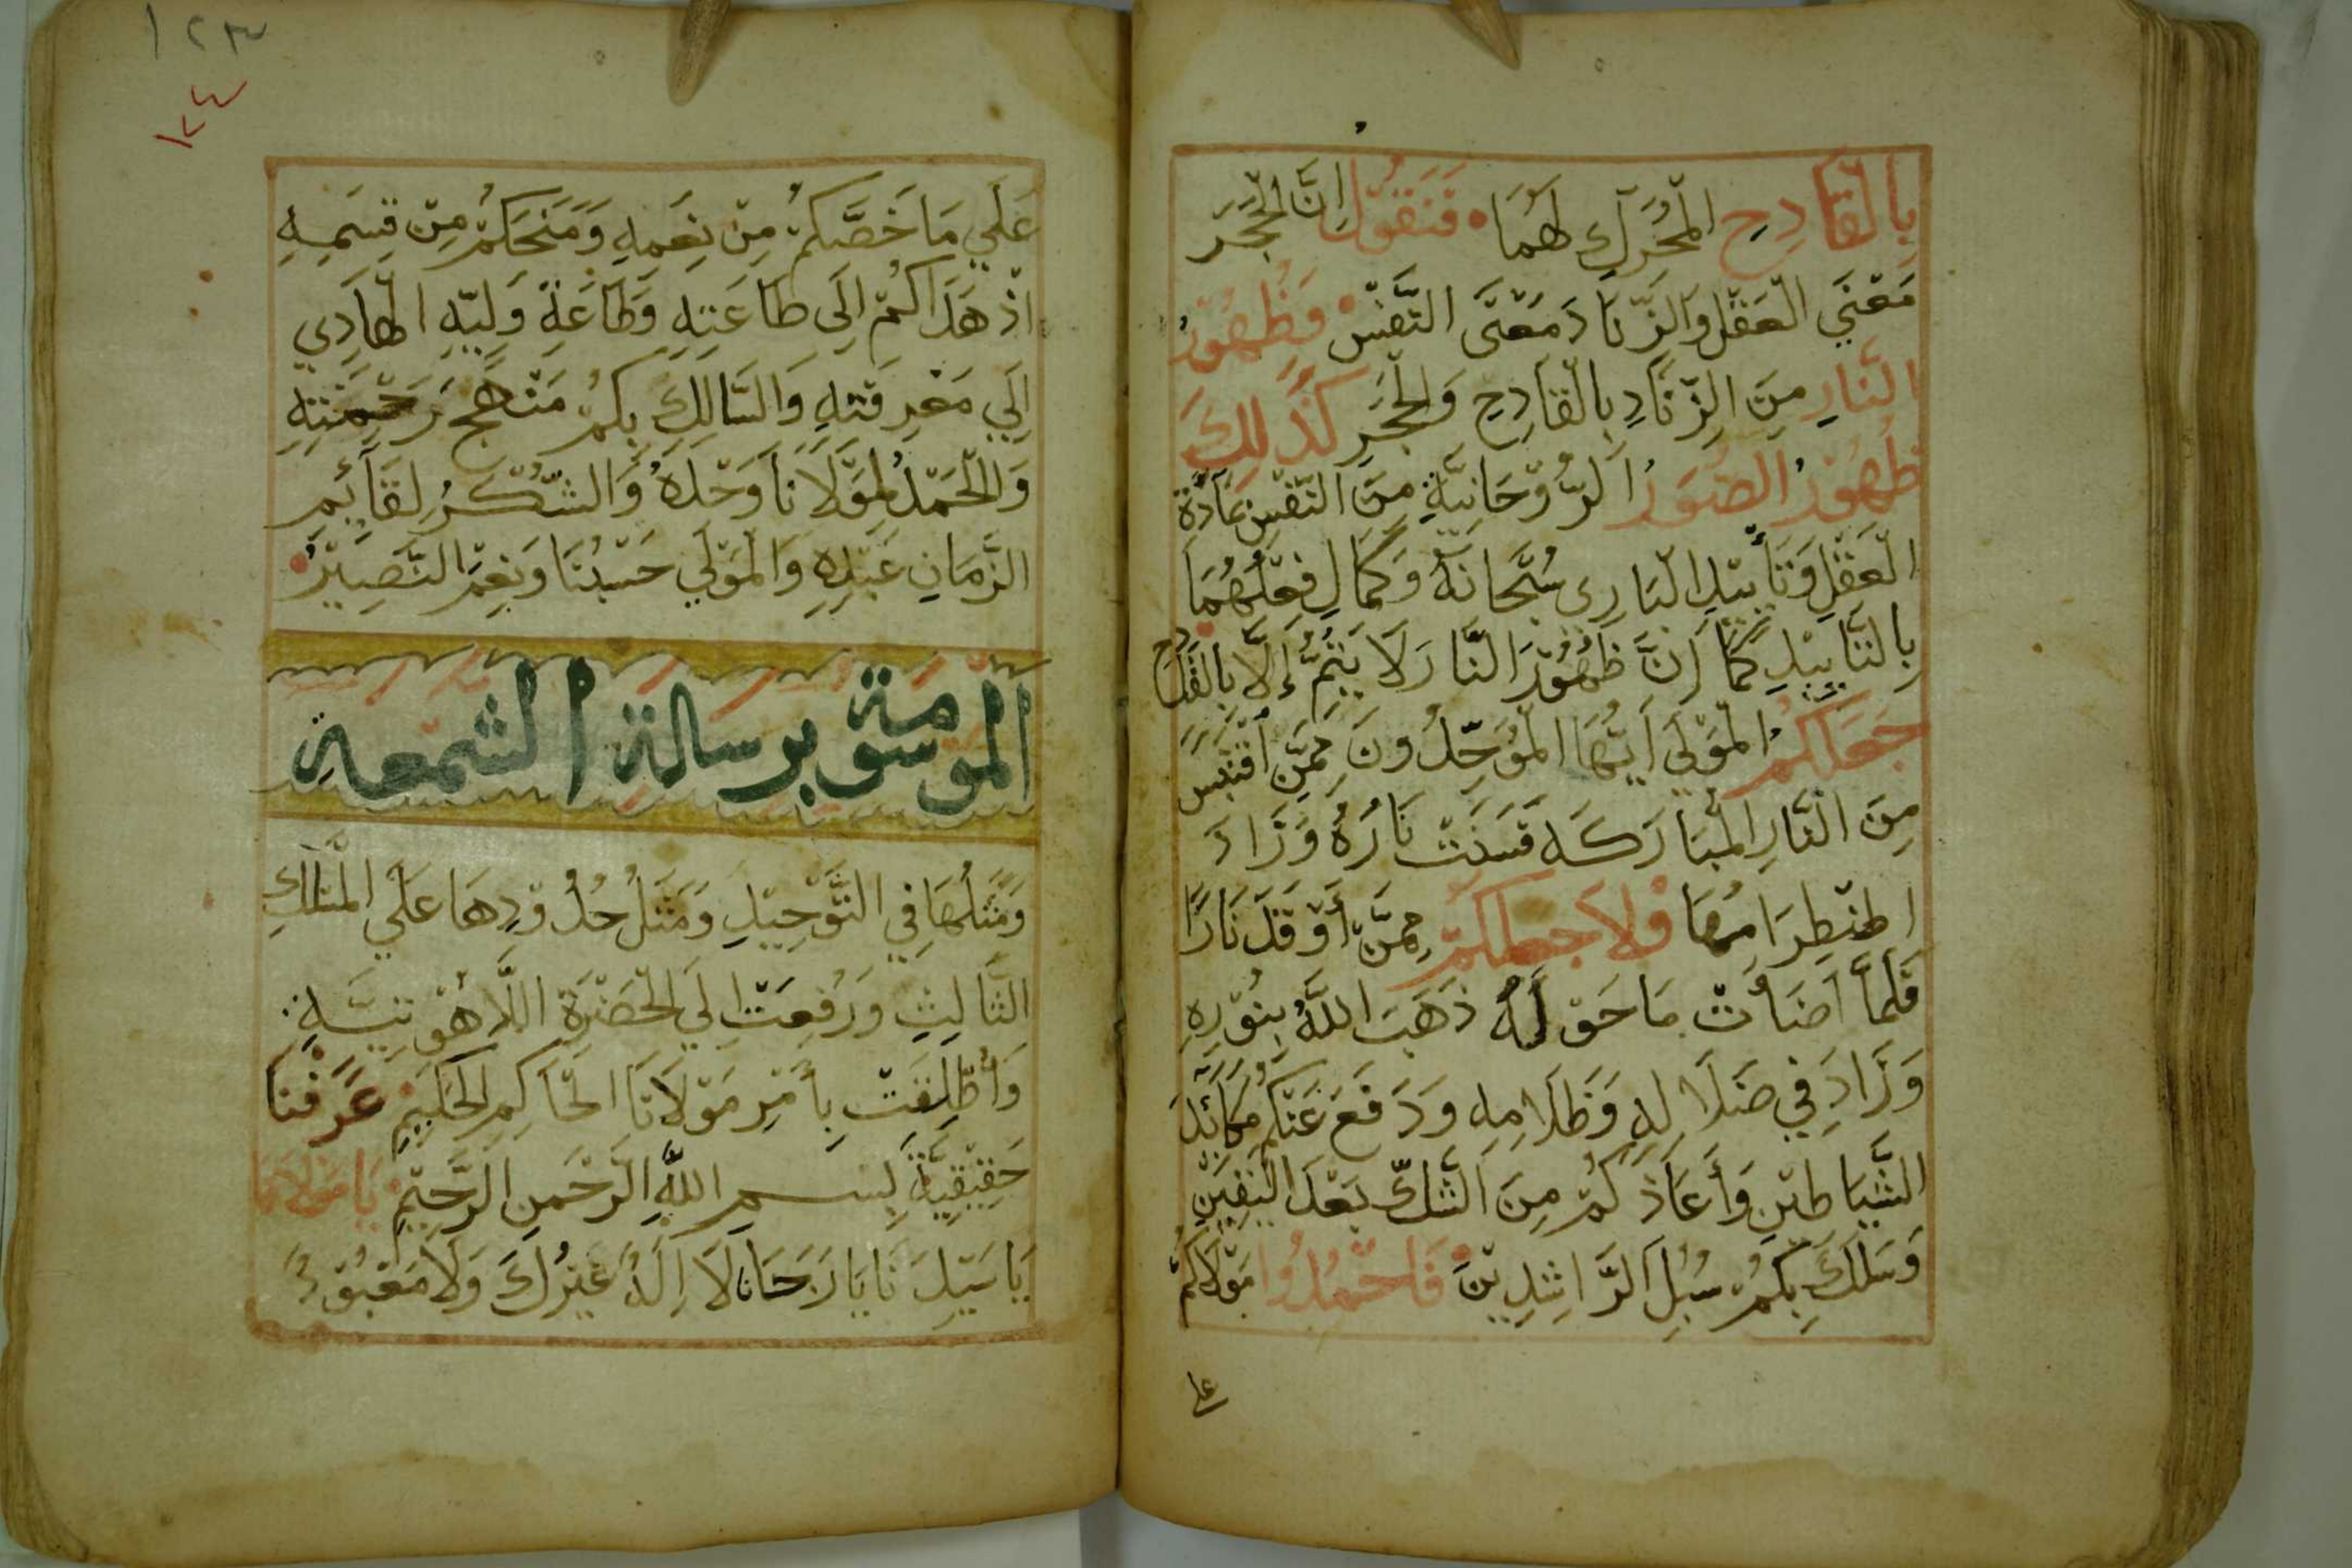 بِالْقَادِحِ الْمُحَرِّكِ لَهُمَا فَنَقُولُ اِنَّ الْحَجَرَ
مَعْنَي الْعَقْلِ وَالزِّنَادَ مَعْنَى النَّفْسِ وَظُهُوْرُ
النَّارِ مِنَ الزِّنَادِ بِالْقَادِحِ وَالْحَجَرِ كَذَلِكَ
ظُهُوْرُ الصُّوَرُ الرُّوْحَانِيَّةِ مِنَ النَّفْسِ بِمَادَّةِ
الْعَقْلِ وَتَأْيِيْدِ الْبَارِى سُبْحَانَهُ وَكَمَالِ فِعْلِهُمَا
بِالتَّايِيْدِ كَمَا اَنَّ ظُهُوْرَ النَّارَ لَا يَتِمُّ إِلَّا بِالْقَدَّاحِ
جَعَلَكُمُ الْمَوْلَي اَيُّهَا الْمُوَحِّدُونَ مِمَّنِ اقْتَبَسَ
مِنَ النَّارِ الْمُبَارَكَه فَسَنَتْ نَارُهُ وَزَادَ
اضْطِرَامُهَا وَلَا جعلكمْ مِمَّنْ أَوْقَدَ نَارًا
فَلَمَّا اَضَأَتْ مَا حَوْلَهُ ذَهَبَ اللَّهُ بِنُوْرِهِ
وَزَادَ فِي ضَلَالِهِ وَظَلَامِهِ وَدَفَعَ عَنْكُمْ مَكَائِدَ
الشَّيَاطِيْنِ وَأَعَاذَكُمْ مِنَ الشَّكِّ بَعْدَ الْيَقِيْنِ
وَسَلَكَ بِكُمْ سُبُلَ الرَّاشِدِيْنَ فَاحْمَدُوا مَوْلَاكُمْ
علي
١٢٣
١٢٤
عَلَي مَا خَصَّكُمْ مِنْ نِعَمِهِ وَمَنَحَكُمْ مِنْ قِسَمِهِ
اذْ هَدَاكُمْ اِلَى طَاعَتِهِ وَطَاعَةِ وَلِيِّهِ الْهَادِي
اِلَي مَعْرِفَتِهِ وَالسَّالِكِ بِكُمْ مَنْهَجَ رَحْمَتِهِ
وَالْحَمْدُ لِمَوْلَانَا وَحْدَهُ وَالشُّكْرُ لِقَآئِمِ
الزَّمَانِ عَبْدِهِ وَالْمَوْلَي حَسْبُنَا وَنِعْمَ النَّصِيْرُ
الموسومة برسالة الشمعة
وَمَثَلُهَا فِي التَّوْحِيْدِ وَمَثَلُ حُدُوْدِهَا عَلَي الْمَثَالِكِ
الثَّالِثِ وَرُفِعَتْ اِلَي الْحَضْرَةِ اللَّاهُوْتِيَّةِ
وَاُطْلِقَتْ بِأَمْرِ مَوْلَانَا الْحَاكِمِ الْحَكِيْمِ عَرَّفْنَا
حَقِيْقِيَّةَ بِسْمِ اللَّهِ الرَّحْمَنِ الرَّحِيْمِ يَا مَوْلَانَا
يَا سَيِّدَنَا يَا رَجَانَا لَا اِلَهُ غَيْرُكَ وَلَا مَعْبُوْدُ